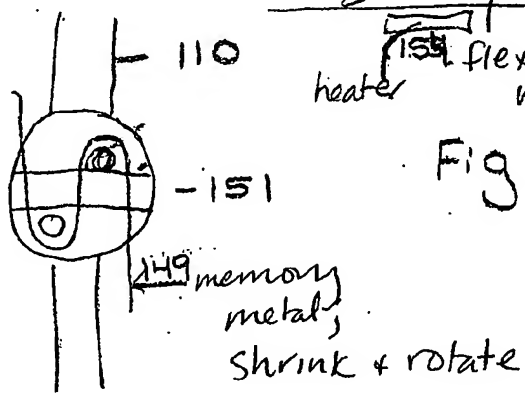 110
heater
Fig
-151
149 memory
metal,
shrink + rotate